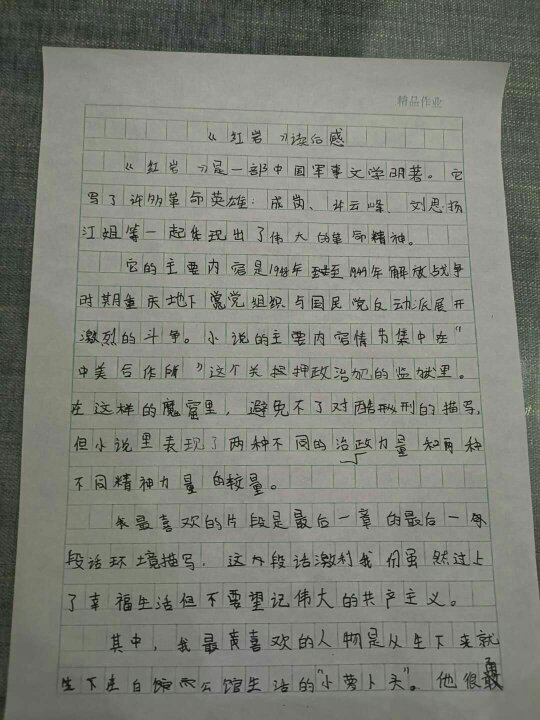 精品作业
《红岩》读后感
《红岩》是一部中国军事文学明著。它
写了许多革命英雄：成岗、许云峰、刘思扬
江姐等一起体现出了伟大的革命精神。
它的主要内容是1948年至1949年解放战争
时期重庆地下党组织与国民党反动派展开
激烈的斗争。小说的主要内容情节集中在“
中美合作所”这个关押政治犯的监狱里。
在这样的魔窟里，避免不了对酷刑的描写，
但小说里表现了两种不同的治政力量和两种
不同精神力量的较量。
我最喜欢的片段是最后一章的最后一
段话环境描写，这段话激利我们虽然过上
了幸福生活但不要望记伟大的共产主义。
其中，我最喜欢的人物是从生下来就
生下在白公馆生活的“小萝卜头”。他很勇